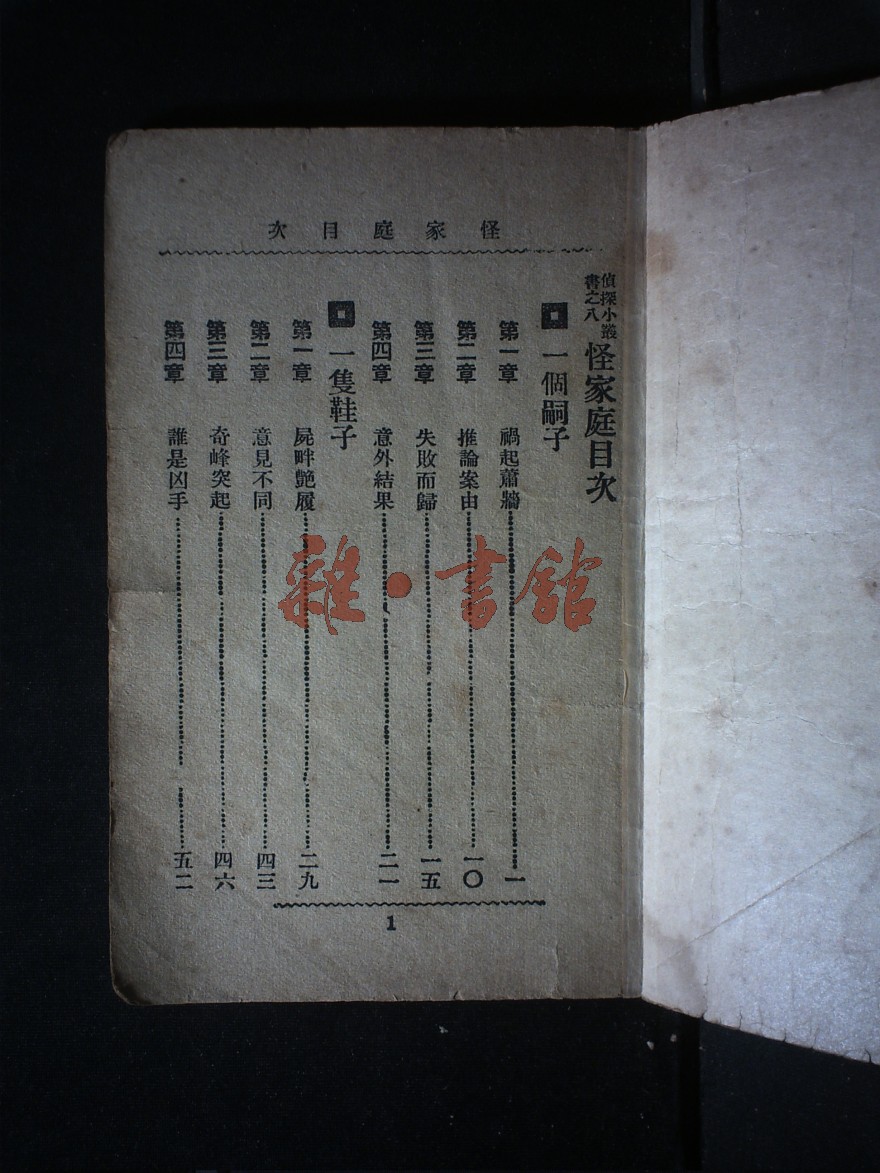 怪家庭目次
偵探小叢書之八 怪家庭目次
一個嗣子
第一章 禍起蕭牆 一
第二章 推論案由 一〇
第三章 失敗而歸 一五
第四章 意外結果 二一
一隻鞋子
第一章 屍畔艷履 二九
第二章 意見不同 四三
第三章 奇峰突起 四六
第四章 誰是凶手 五二
1
雜·書館